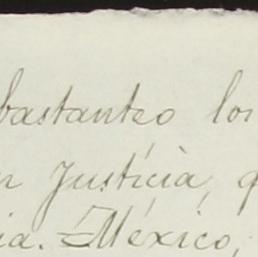 bastanteo los
n Justicia, q
ia. México,